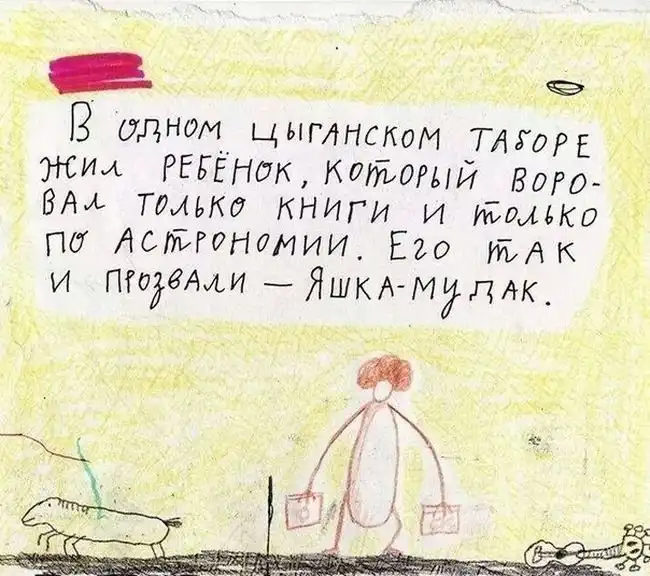 В одном цыганском таборе
жил ребёнок, который воро-
вал только книги и только
по астрономии. Его так
и прозвали — Яшка-мудак.